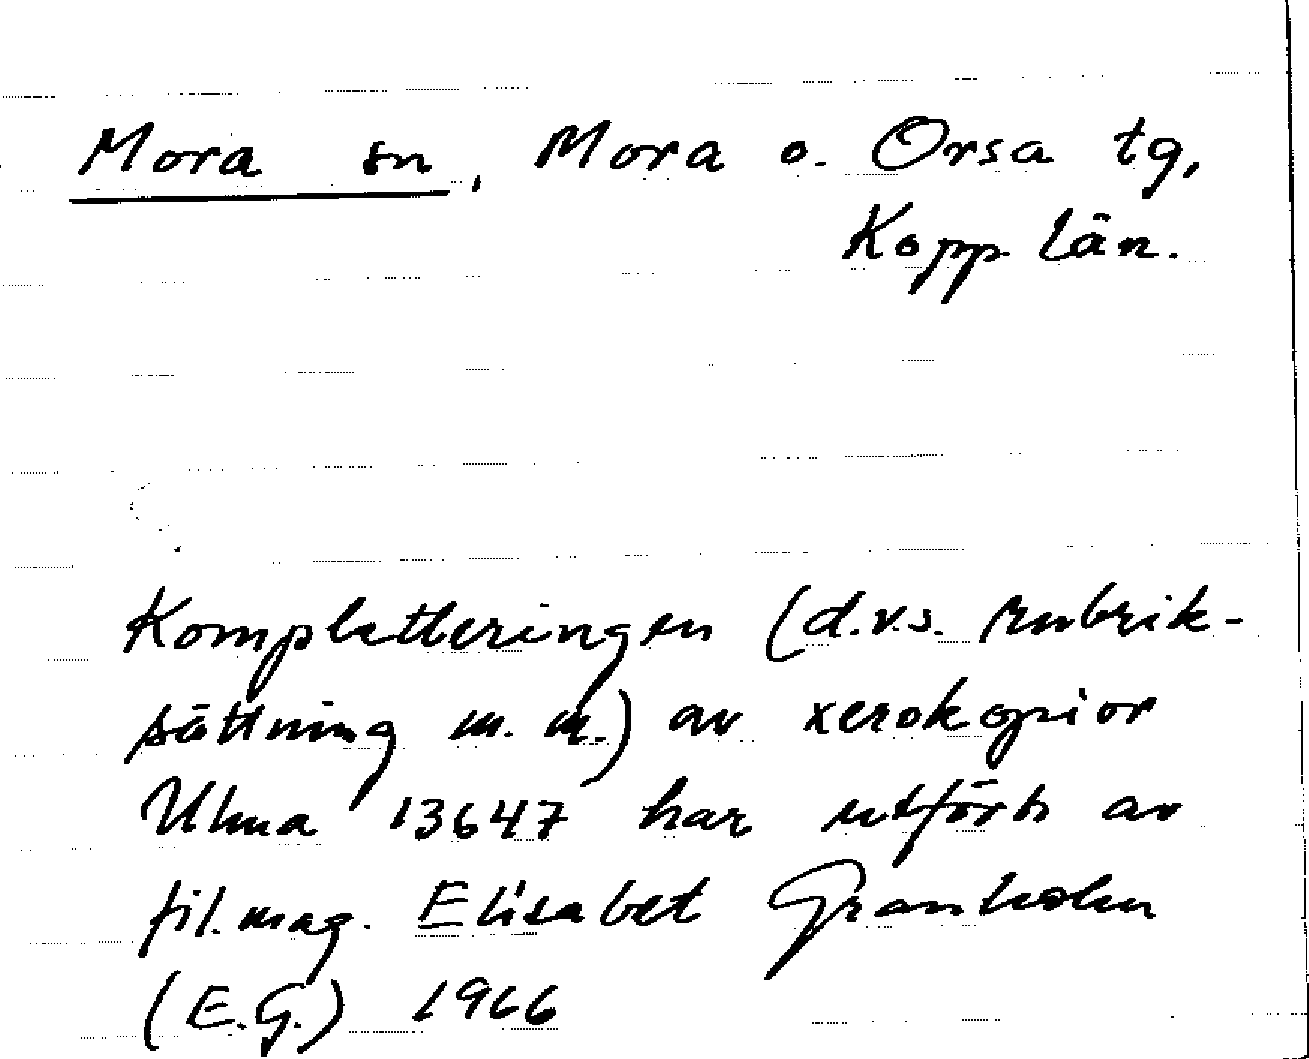 Mora sn, Mora o. Orsa tg,
Kopp län.
Kompletteringen (d.v.s. rubrik-
sättning m.m.) av xerokopior
Ulma 13647 har utförts av
fil.mag. Elisabet Granholm
(E.G.) 1966